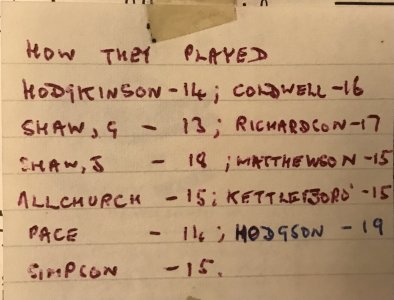 HOW THEY PLAYED
HODGKINSON - 14; COLDWELL - 16
SHAW, G - 13; RICHARDSON - 17
SHAW, J - 18; MATTHEWSON - 15
ALLCHURCH - 15; KETTLEBORO' - 15
PACE - 14; HODGSON - 19
SIMPSON - 15.